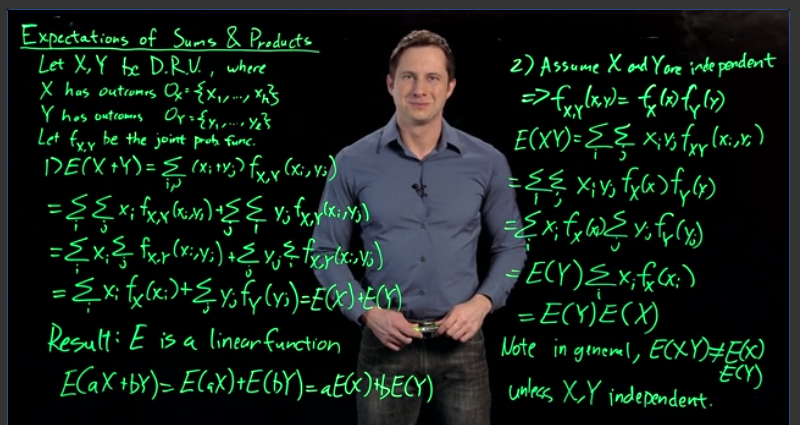 Expectations of Sums & Products
Let X,Y be D.R.V., where
X has outcomes O_X = {x_1, ..., x_k}
Y has outcomes O_Y = {y_1, ..., y_ℓ}
Let f_{X,Y} be the joint prob. func.
1) E(X+Y) = Σ_{i,j} (x_i+y_j) f_{X,Y}(x_i,y_j)
= Σ_i Σ_j x_i f_{X,Y}(x_i,y_j) + Σ_j Σ_i y_j f_{X,Y}(x_i,y_j)
= Σ_i x_i Σ_j f_{X,Y}(x_i,y_j) + Σ_j y_j Σ_i f_{X,Y}(x_i,y_j)
= Σ_i x_i f_X(x_i) + Σ_j y_j f_Y(y_j) = E(X)+E(Y)
Result: E is a linear function
E(aX+bY) = E(aX)+E(bY) = aE(X)+bE(Y)
2) Assume X and Y are independent
=> f_{X,Y}(x,y) = f_X(x) f_Y(y)
E(XY) = Σ_i Σ_j x_i y_j f_{XY}(x_i,y_j)
= Σ_i Σ_j x_i y_j f_X(x) f_Y(y)
= Σ_i x_i f_X(x_i) Σ_j y_j f_Y(y_j)
= E(Y) Σ_i x_i f_X(x_i)
= E(Y)E(X)
Note in general, E(XY) ≠ E(X)
E(Y)
unless X,Y independent.